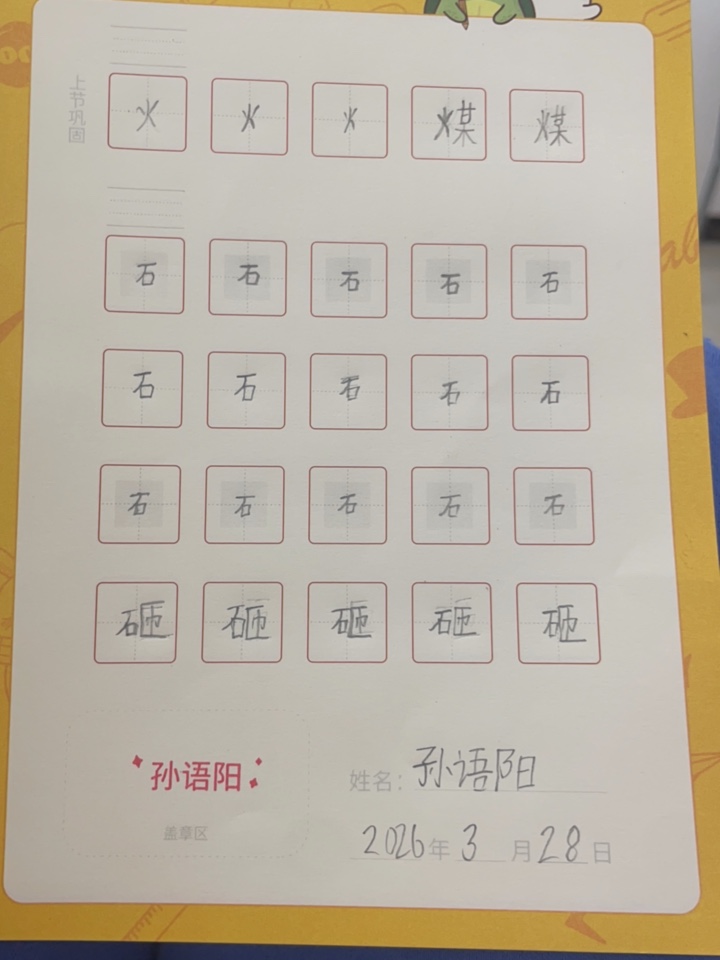 上节巩固
火 火 火 煤 煤
石 石 石 石 石
石 石 石 石 石
石 石 石 石 石
砸 砸 砸 砸 砸
孙语阳
盖章区
姓名：孙语阳
2026年3月28日